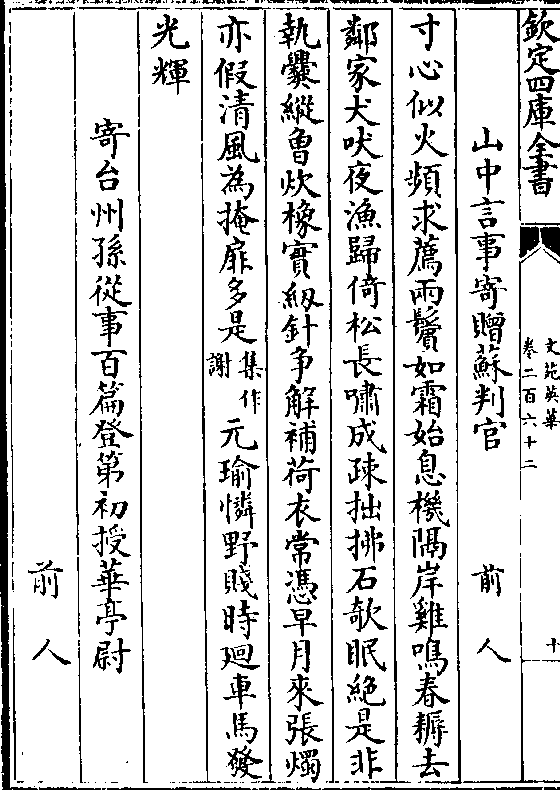 欽定四庫全書
文苑英華
卷二百六十二
十
山中言事寄贈蘇判官
前人
寸心似火頻求薦兩鬢如霜始息機隔岸雞鳴春耨去
鄰家犬吠夜漁歸倚松長嘯成疎拙拂石欹眠絕是非
執爨縱魯炊橡實紉針争解補荷衣常憑早月來張燭
亦假清風為掩扉多是集作謝元瑜憐野賤時廻車馬發
光輝
寄台州孫從事百篇登第初授華亭尉
前人